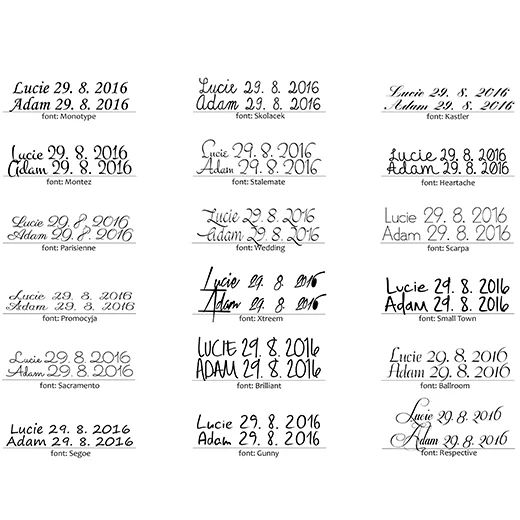 Lucie 29. 8. 2016
Adam 29. 8. 2016
font: Monotype
Lucie 29. 8. 2016
Adam 29. 8. 2016
font: Skolacek
Lucie 29. 8. 2016
Adam 29. 8. 2016
font: Kastler
Lucie 29. 8. 2016
Adam 29. 8. 2016
font: Montez
Lucie 29. 8. 2016
Adam 29. 8. 2016
font: Stalemate
Lucie 29. 8. 2016
Adam 29. 8. 2016
font: Heartache
Lucie 29. 8 2016
Adam 29. 8. 2016
font: Parisienne
Lucie 29. 8. 2016
Adam 29. 8. 2016
font: Wedding
Lucie 29. 8. 2016
Adam 29. 8. 2016
font: Scarpa
Lucie 29. 8. 2016
Adam 29. 8. 2016
font: Promocyja
Lucie 29. 8 2016
Adam 29. 8 2016
font: Xtreem
Lucie 29. 8. 2016
Adam 29. 8. 2016
font: Small Town
Lucie 29. 8. 2016
Adam 29. 8. 2016
font: Sacramento
LUCIE 29. 8. 2016
ADAM 29. 8. 2016
font: Brilliant
Lucie 29. 8. 2016
Adam 29. 8. 2016
font: Ballroom
Lucie 29. 8. 2016
Adam 29. 8. 2016
font: Segoe
Lucie 29. 8. 2016
Adam 29. 8. 2016
font: Gunny
Lucie 29. 8. 2016
Adam 29. 8. 2016
font: Respective